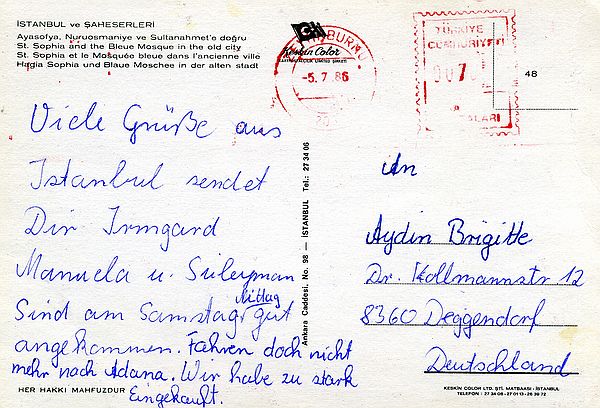 İSTANBUL ve ŞAHESERLERİ
Ayasofya, Nuruosmaniye ve Sultanahmet'e doğru
St. Sophia and the Bleue Mosque in the old city
St. Sophia et le Mosquée bleue dans l'ancienne ville
Hagia Sophia und Blaue Moschee in der alten stadt
Keskin Color
-5.7.86
TÜRKİYE
CUMHURİYETİ
48
Viele Grüße aus
Istanbul sendet
Dir Irmgard
Manuela u. Süleyman
Mittag
Sind am Samstag gut
angekommen. Fahren doch nicht
mehr nach Adana. Wir habe zu stark
Eingekauft.
HER HAKKI MAHFUZDUR
Ankara Caddesi, No. 98 — İSTANBUL Tel.: 27 34 06
An
Aydin Brigitte
Dr. Kollmannstr. 12
8360 Deggendorf
Deutschland
KESKİN COLOR LTD. ŞTİ. MATBAASI - İSTANBUL
TELEFON : 27 34 06 - 27 01 13 - 26 39 72